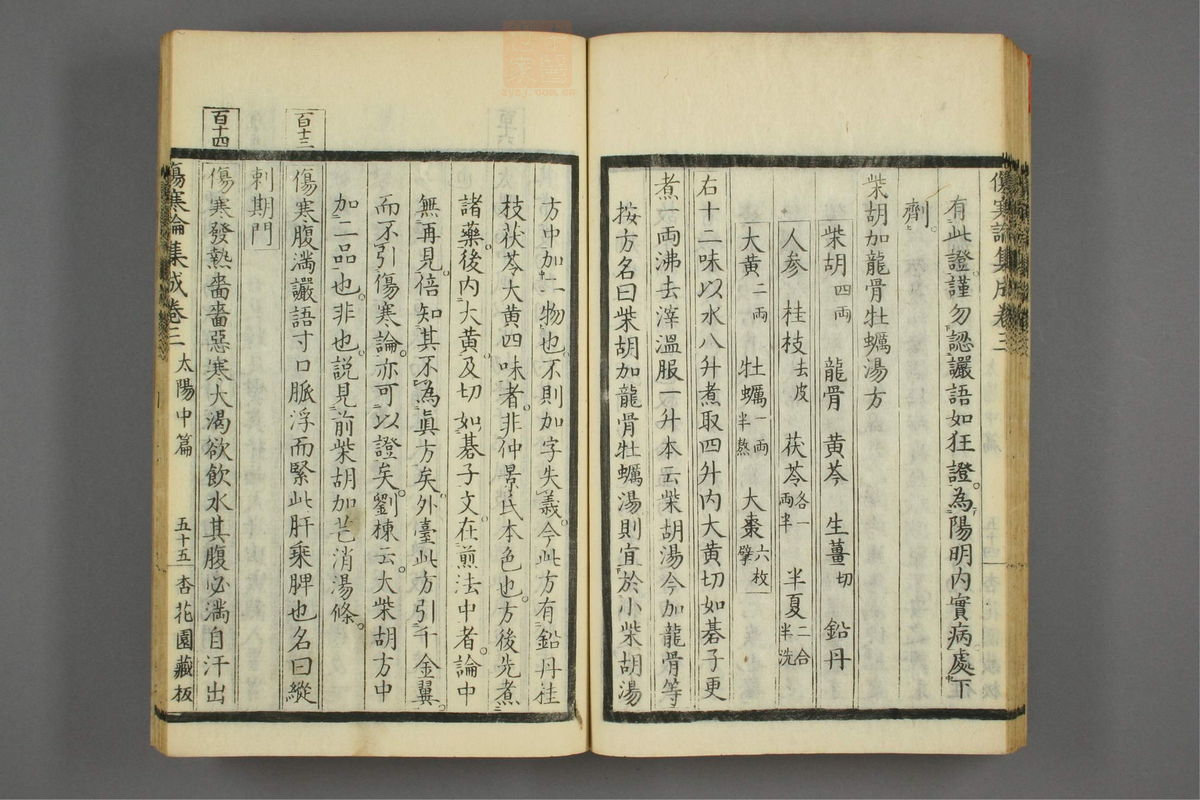 傷寒論集成卷三
有此證謹勿認讝語如狂證為陽明內實病處下
劑
柴胡加龍骨牡蠣湯方
柴胡四兩 龍骨 黃芩 生薑切 鉛丹
人参 桂枝去皮 茯苓各一兩半 半夏二合半洗
大黃二兩 牡蠣一兩半熬 大棗六枚擘
右十二味以水八升煮取四升內大黃切如碁子更
煮一兩沸去滓溫服一升本云柴胡湯今加龍骨等
按方名曰柴胡加龍骨牡蠣湯則宜於小柴胡湯
方中加二物也不則加字失義今此方有鉛丹桂
枝茯苓大黃四味者非仲景氏本色也方後先煮
諸藥後內大黃及切如碁子文在煎法中者論中
無再見倍知其不為眞方矣外臺此方引千金翼
而不引傷寒論亦可以證矣劉棟云大柴胡方中
加二品也非也說見前柴胡加芒消湯條
百十三
傷寒腹滿讝語寸口脈浮而緊此肝乘脾也名曰縱
刺期門
百十四
傷寒發熱嗇嗇惡寒大渴欲飲水其腹必滿自汗出
傷寒論集成卷三 太陽中篇 五十五 杏花園藏板